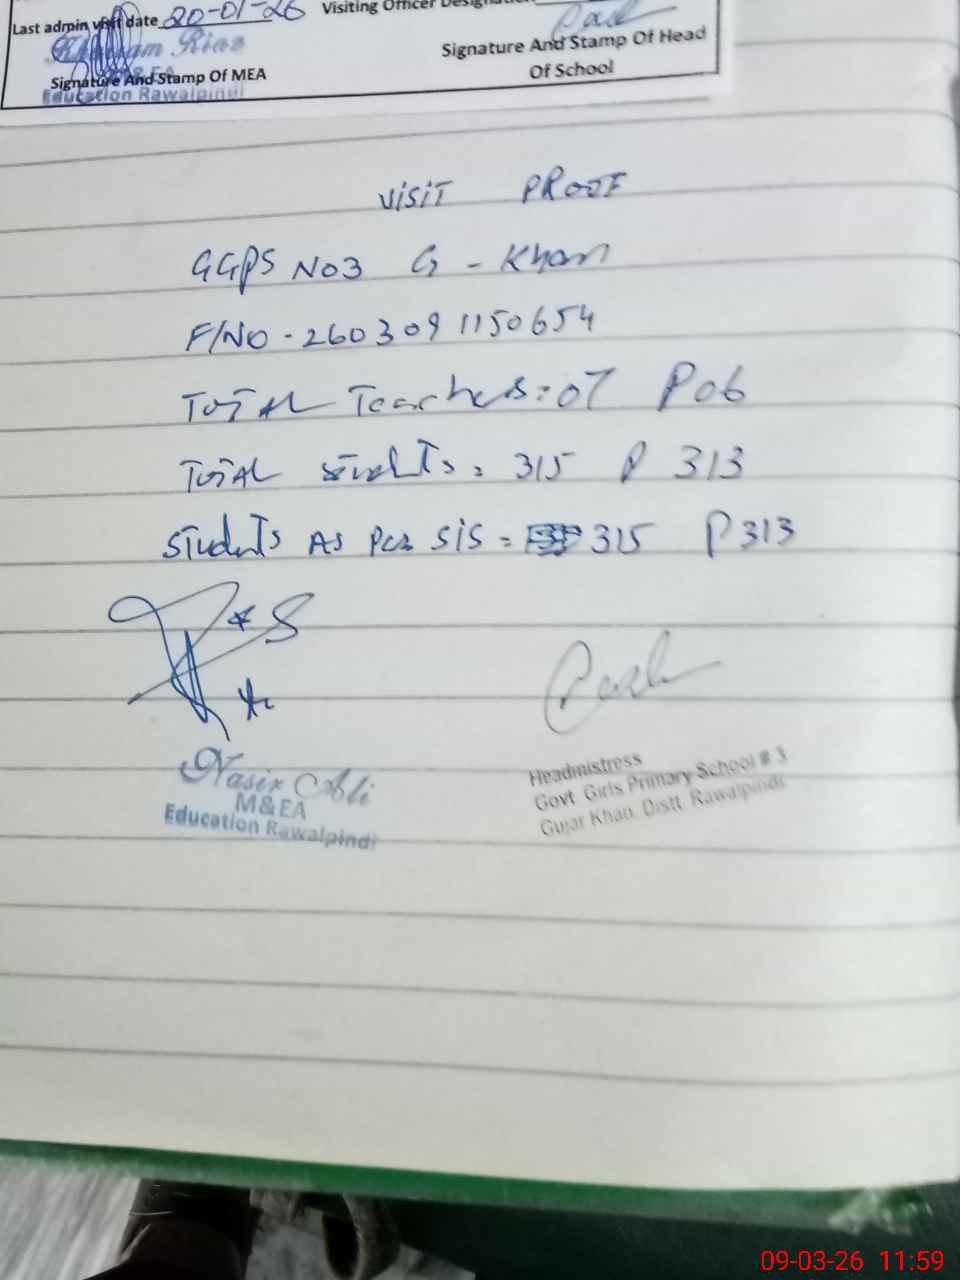 Last admin visit date 20-01-26 Visiting Officer
Signature And Stamp Of MEA
Education Rawalpindi
Signature And Stamp Of Head
Of School
VISIT PROOF
GGPS NO3 G - Khan
F/NO - 2603091150654
TOTAL Teachers: 07 P 06
TOTAL Students = 315 P 313
Students AS Per SIS = 315 P 313
Nasir Ali
M&EA
Education Rawalpindi
Headmistress
Govt. Girls Primary School # 3
Gujar Khan, Distt. Rawalpindi
09-03-26 11:59